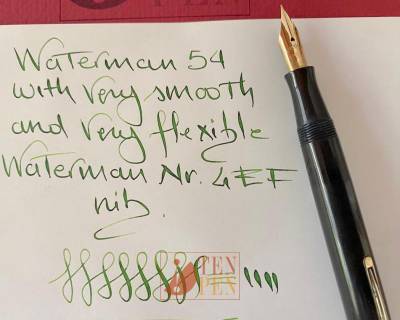 Waterman 54
with very smooth
and very flexible
Waterman Nr. 4 EF
nib.
TEN
PEN